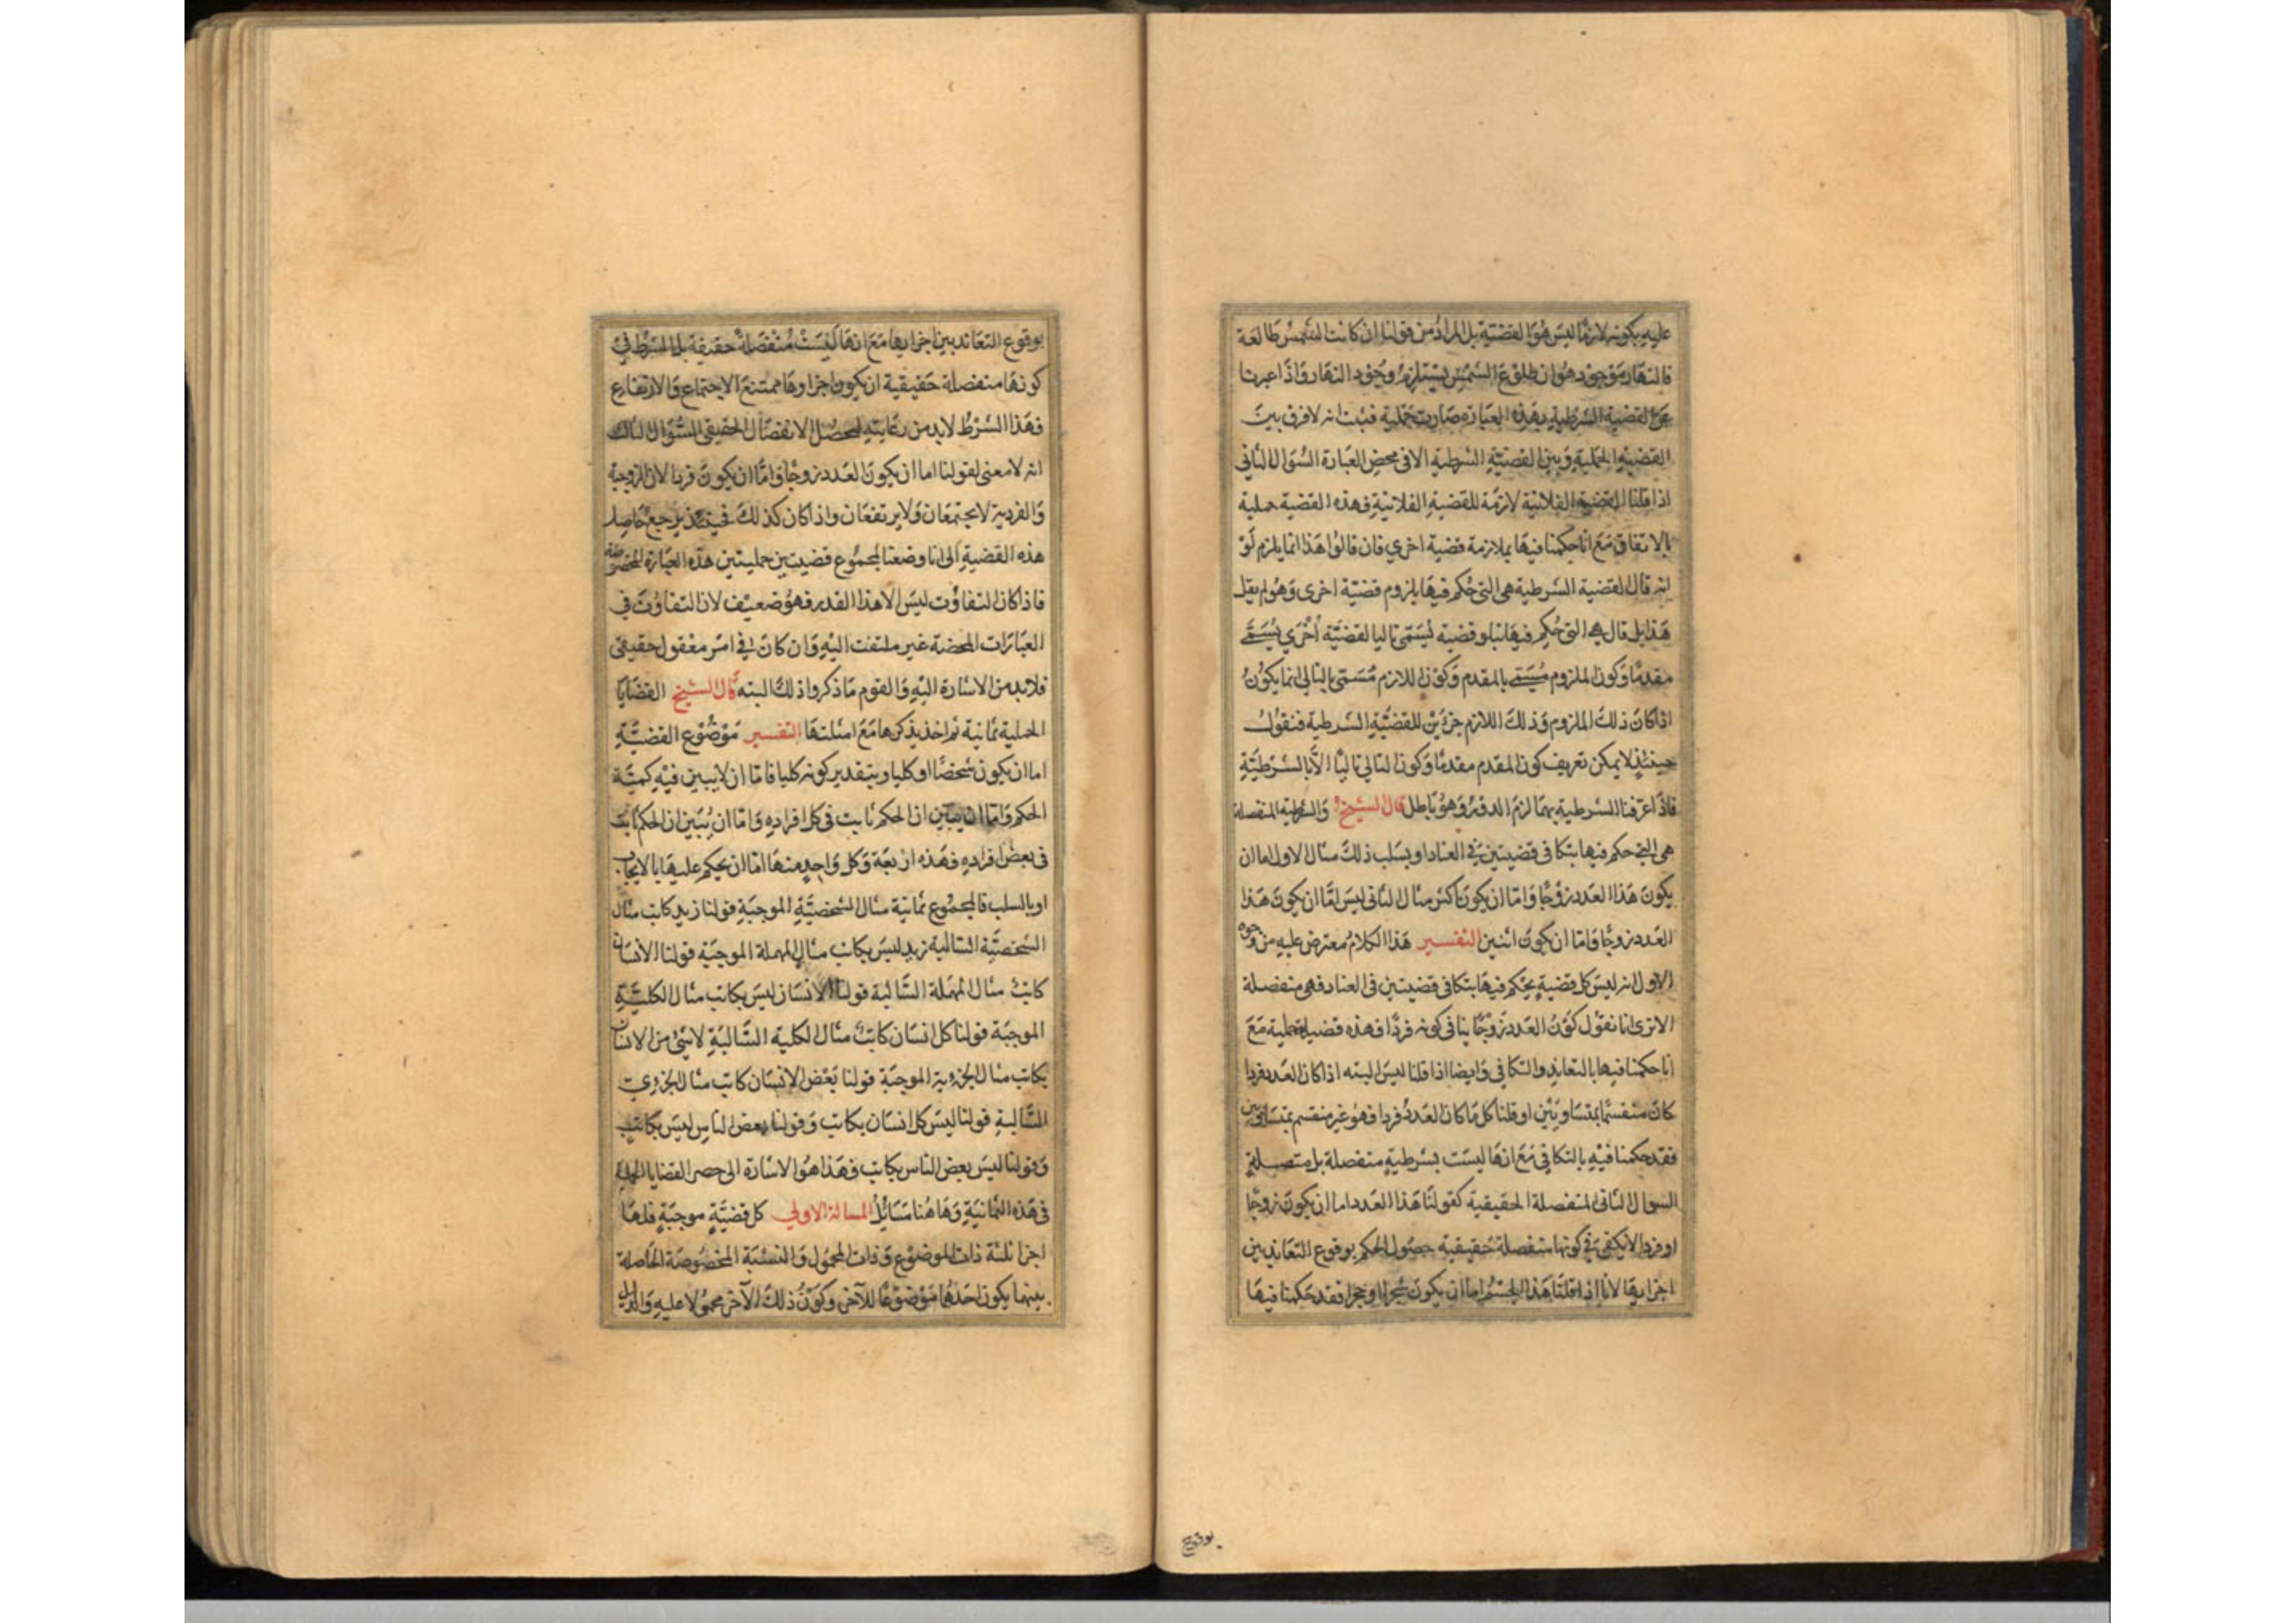 عليه بكونه لازما ليس هو القضية بل المراد من قولنا ان كانت الشمس طالعة
فالنهار موجود هو ان طلوع الشمس يستلزم وجود النهار واذا عبرنا
عن القضية الشرطية بهذه العبارة صارت حملية فثبت انه لا فرق بين
القضية الحملية وبين القضية الشرطية الا في محض العبارة السؤال الثاني
اذا قلنا القضية الفلانية لازمة للقضية الفلانية فهذه القضية حملية
بالاتفاق مع انا حكمنا فيها بملازمة قضية اخري فان قالوا هذا انما يلزم لو
انه قال القضية الشرطية هي التي حكم فيها بلزوم قضية اخرى وهو لم يقل
هذا بل قال هي التي حكم فيها بتلو قضية تسمى تاليا لقضية أخري تسمى
مقدما وكون الملزوم مسمى بالمقدم وكون اللازم مسمى بالتالي انما يكون
اذا كان ذلك الملزوم وذلك اللازم جزئين للقضية الشرطية فنقول
حينئذ لا يمكن تعريف كون المقدم مقدما وكون التالي تاليا الا بالشرطية
فاذا عرفنا الشرطية بهما لزم الدور وهو باطل قال الشيخ والشرطية المنفصلة
هي التي حكم فيها بتكافي قضيتين في العناد او بسلب ذلك مثال الاول اما ان
يكون هذا العدد زوجا واما ان يكون مثال الثاني ليس اما ان يكون هذا
العدد زوجا واما ان يكون اثنين التفسير هذا الكلام معترض عليه من وجوه
الاول انه ليس كل قضية يحكم فيها بتكافي قضيتين في العناد فهي منفصلة
الا ترى انا نقول كون العدد زوجا ينافي كونه فردا فهذه قضية حملية مع
انا حكمنا فيها بالتعاند والتكافي وايضا اذا قلنا ليس البته اذا كان العدد فردا
كان منقسما بمتساويين او قلنا كل ما كان العدد فردا فهو غير منقسم بمتساويين
فقد حكمنا فيه بالتكافي مع انها ليست بشرطية منفصلة بل متصلة
السوال الثاني المنفصلة الحقيقية كقولنا هذا العدد اما ان يكون زوجا
او فردا لا يكفي في كونها منفصلة حقيقية حصول الحكم بوقوع التعاند بين
اجزايها لانا اذا قلنا هذا الجسم اما ان يكون شجرا او حجرا فقد حكمنا فيها
بوقوع
بوقوع التعاند بين اجزايها مع انها ليست منفصلة حقيقة بل الشرط في
كونها منفصلة حقيقية ان يكون اجزاوها ممتنع الاجتماع والارتفاع
فهذا الشرط لا بد من رعايته ليحصل الانفصال الحقيقي السؤال الثالث
انه لا معنى لقولنا اما ان يكون العدد زوجا واما ان يكون فردا لان الزوجية
والفردية لا يجتمعان ولا يرتفعان واذا كان كذلك فحينئذ يرجع حاصل
هذه القضية الى انا وضعنا لمجموع قضيتين حمليتين هذه العبارة المخصوصة
فاذا كان التفاوت ليس الا هذا القدر فهو ضعيف لان التفاوت في
العبارات المحضة غير ملتفت اليه وان كان في امر معقول حقيقي
فلا بد من الاشارة اليه والقوم ما ذكروا ذلك البته قال الشيخ القضايا
الحملية ثمانية ثم اخذ يذكرها مع امثلتها التفسير موضوع القضية
اما ان يكون شخصا او كليا وبتقدير كونه كليا فاما ان لا يبين فيه كمية
الحكم واما ان يبين ان الحكم ثابت في كل افراده واما ان يبين ان الحكم ثابت
في بعض افراده فهذه اربعة وكل واحد منها اما ان يحكم عليها بالايجاب
او بالسلب فالمجموع ثمانية مثال الشخصية الموجبة قولنا زيد كاتب مثال
الشخصية السالبة زيد ليس بكاتب مثال المهملة الموجبة قولنا الانسان
كاتب مثال المهملة السالبة قولنا الانسان ليس بكاتب مثال الكلية
الموجبة قولنا كل انسان كاتب مثال الكلية السالبة لا شئ من الانسان
بكاتب مثال الجزوية الموجبة قولنا بعض الانسان كاتب مثال الجزوية
السالبة قولنا ليس كل انسان بكاتب وقولنا بعض الناس ليس بكاتب
وقولنا ليس بعض الناس بكاتب فهذا هو الاشارة الى حصر القضايا الحملية
في هذه الثمانية وهاهنا مسائل المسالة الاولي كل قضية موجبة فلها
اجزا ثلثة ذات الموضوع وذات المحمول والنسبة المخصوصة الحاصلة
بينهما يكون احدهما موضوعا للآخر وكون ذلك الآخر محمولا عليه والدليل